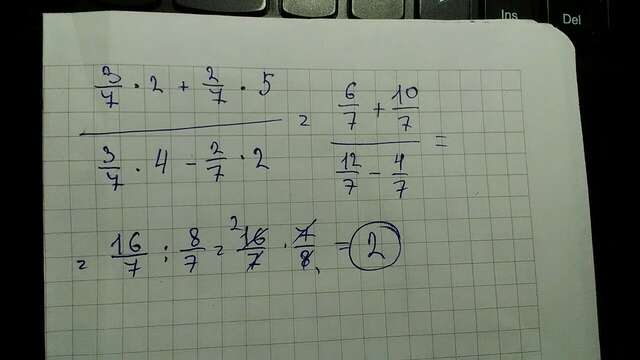 Ins
Del
(3/7 · 2 + 2/7 · 5) / (3/7 · 4 - 2/7 · 2) = (6/7 + 10/7) / (12/7 - 4/7) =
= 16/7 : 8/7 = 2 16/7 · 7/8 1 = 2